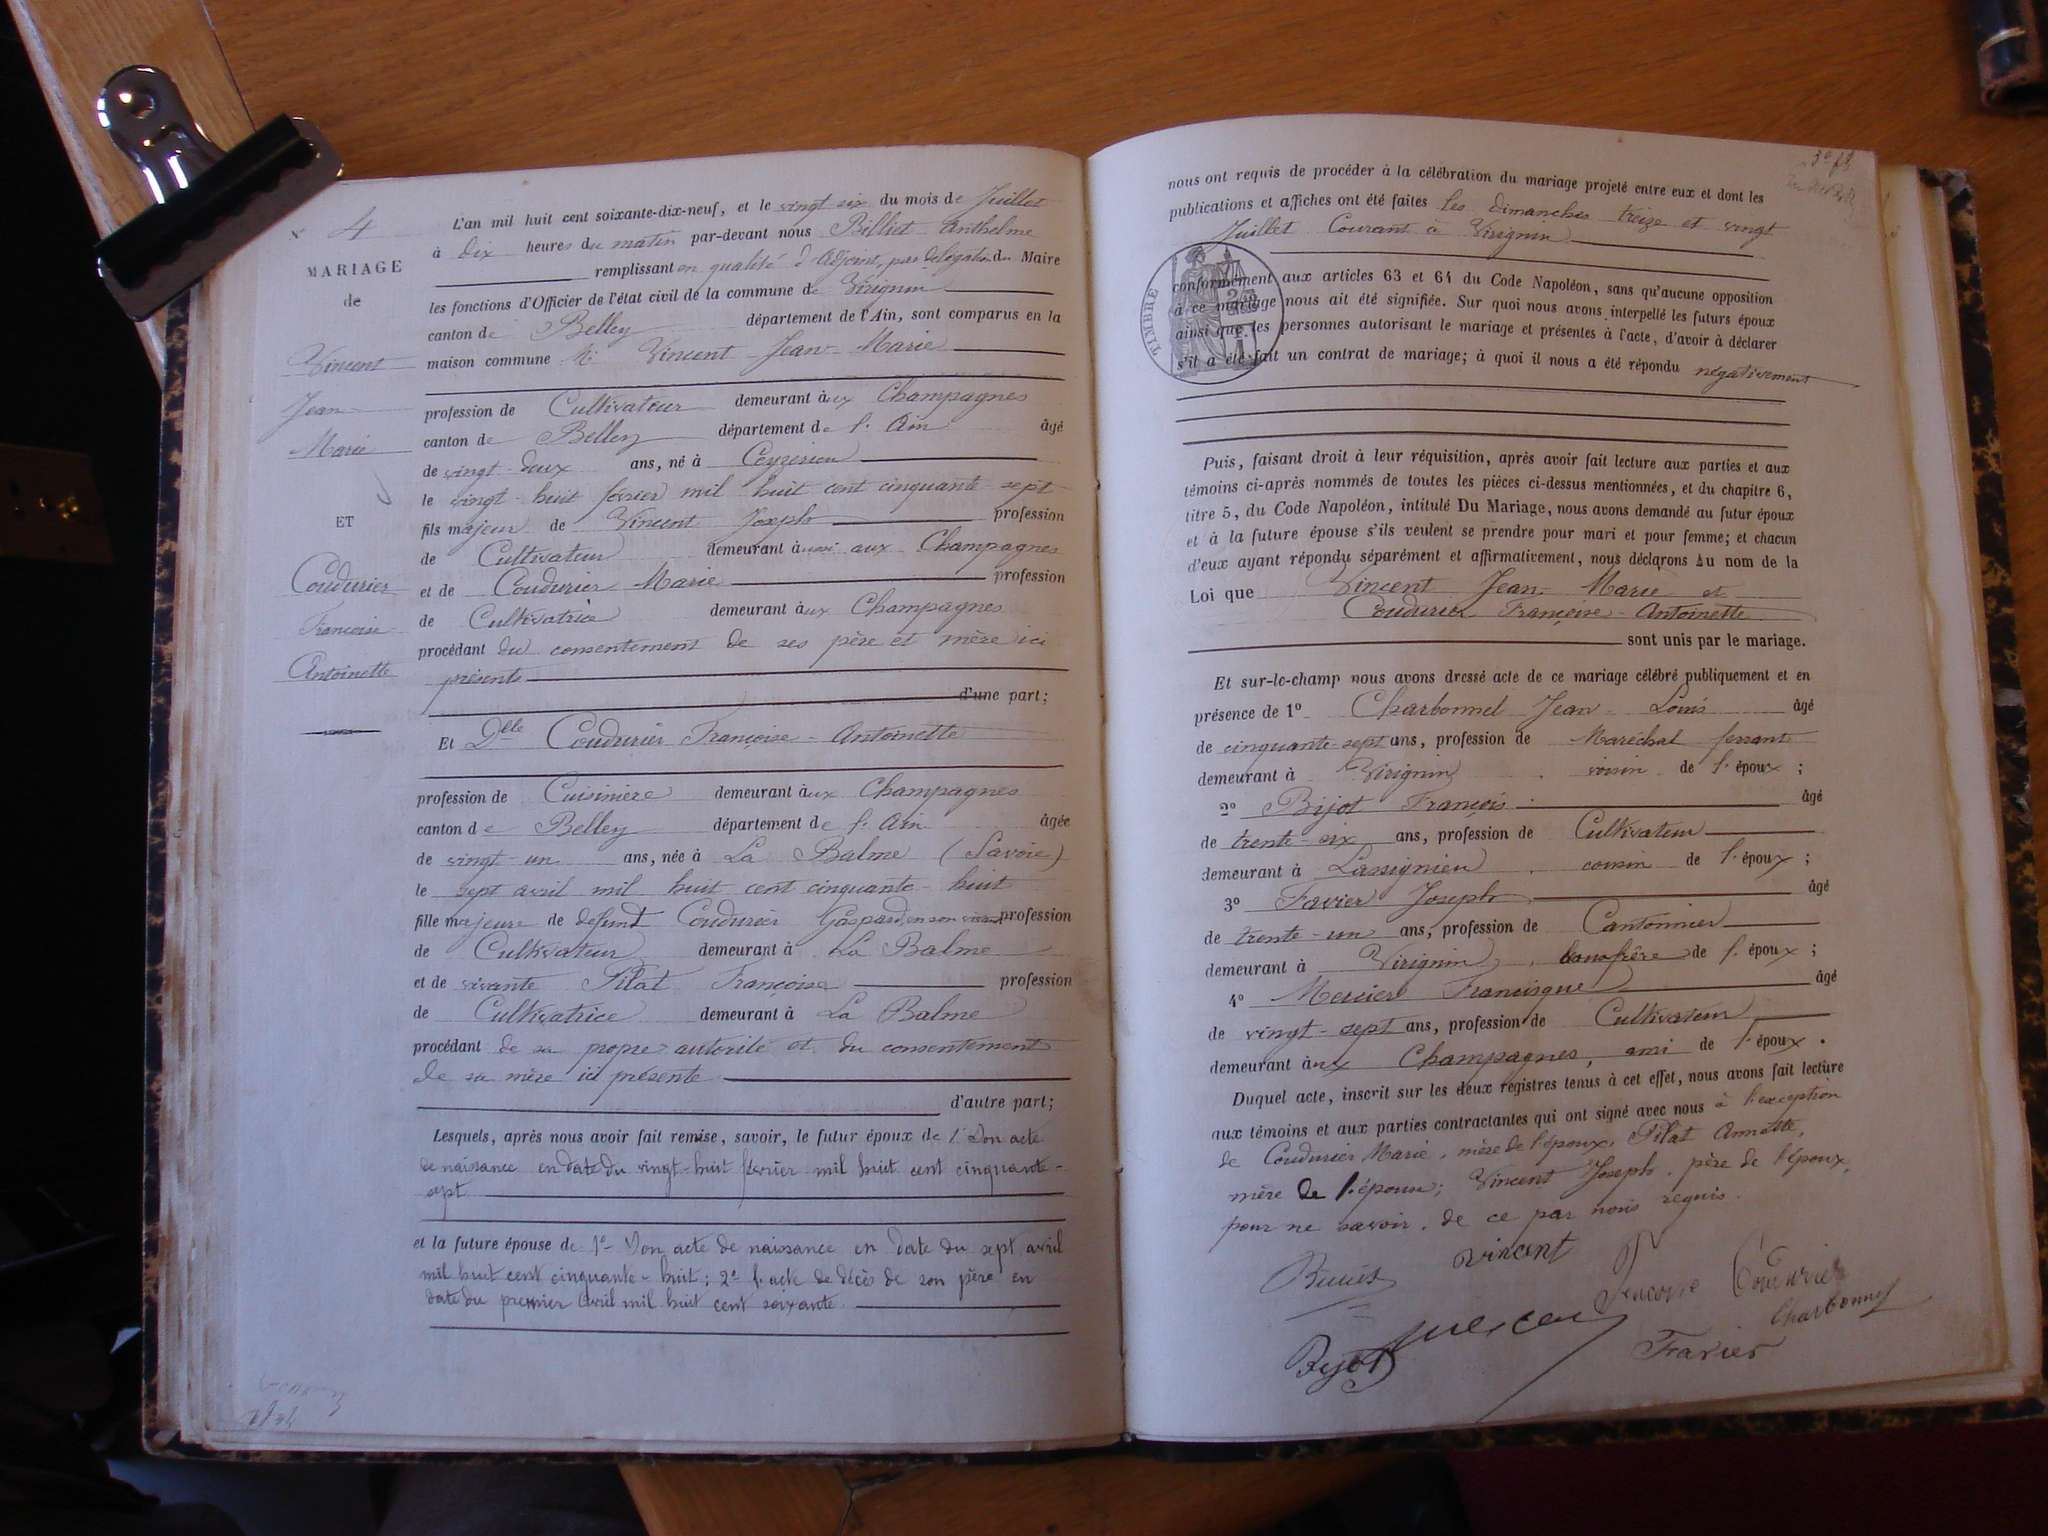 N° 4
MARIAGE
de
Vincent
Jean
Marie
ET
Coudurier
Françoise
Antoinette
L'an mil huit cent soixante-dix-neuf, et le vingt six du mois de Juillet
à dix heures du matin par-devant nous Billiet Anthelme
remplissant en qualité d'adjoint, par délégation du Maire
les fonctions d'Officier de l'état civil de la commune de Virignin
canton de Belley département de l'Ain, sont comparus en la
maison commune Mr Vincent Jean-Marie
profession de Cultivateur demeurant aux Champagnes
canton de Belley département de l'Ain âgé
de vingt-deux ans, né à Ceyzerieu
le vingt-huit février mil huit cent cinquante-sept
fils majeur de Vincent Joseph profession
de Cultivateur demeurant aussi aux Champagnes
et de Coudurier Marie profession
de Cultivatrice demeurant aux Champagnes
procédant du consentement de ses père et mère ici
présents
d'une part;
Et Dlle Coudurier Françoise-Antoinette
profession de Cuisinière demeurant aux Champagnes
canton de Belley département de l'Ain âgée
de vingt-un ans, née à La Balme (Savoie)
le sept avril mil huit cent cinquante-huit
fille majeure de défunt Coudurier Gaspard, en son vivant profession
de Cultivateur demeurant à La Balme
et de vivante Pilat Françoise profession
de Cultivatrice demeurant à La Balme
procédant de sa propre autorité et du consentement
de sa mère ici présente
d'autre part;
Lesquels, après nous avoir fait remise, savoir, le futur époux de 1° Son acte
de naissance en date du vingt-huit février mil huit cent cinquante-
sept
et la future épouse de 1° Son acte de naissance en date du sept avril
mil huit cent cinquante-huit; 2° l'acte de décès de son père en
date du premier avril mil huit cent soixante
nous ont requis de procéder à la célébration du mariage projeté entre eux et dont les
publications et affiches ont été faites les dimanches treize et vingt
Juillet Courant à Virignin
TIMBRE
conformément aux articles 63 et 64 du Code Napoléon, sans qu'aucune opposition
à ce mariage nous ait été signifiée. Sur quoi nous avons interpellé les futurs époux
ainsi que les personnes autorisant le mariage et présentes à l'acte, d'avoir à déclarer
s'il a été fait un contrat de mariage; à quoi il nous a été répondu négativement
Puis, faisant droit à leur réquisition, après avoir fait lecture aux parties et aux
témoins ci-après nommés de toutes les pièces ci-dessus mentionnées, et du chapitre 6,
titre 5, du Code Napoléon, intitulé Du Mariage, nous avons demandé au futur époux
et à la future épouse s'ils veulent se prendre pour mari et pour femme; et chacun
d'eux ayant répondu séparément et affirmativement, nous déclarons Au nom de la
Loi que Vincent Jean-Marie et
Coudurier Françoise-Antoinette
sont unis par le mariage.
Et sur-le-champ nous avons dressé acte de ce mariage célébré publiquement et en
présence de 1° Charbonnel Jean-Louis âgé
de cinquante-sept ans, profession de Maréchal ferrant
demeurant à Virignin voisin de l'époux;
2° Bijot François âgé
de trente-six ans, profession de Cultivateur
demeurant à Lassignieu cousin de l'époux;
3° Favier Joseph âgé
de trente-un ans, profession de Cantonnier
demeurant à Virignin, beaufrère de l'époux;
4° Mercier Francisque âgé
de vingt-sept ans, profession de Cultivateur
demeurant aux Champagnes, ami de l'époux.
Duquel acte, inscrit sur les deux registres tenus à cet effet, nous avons fait lecture
aux témoins et aux parties contractantes qui ont signé avec nous à l'exception
de Coudurier Marie, mère de l'époux, Pilat Annette,
mère de l'épouse; Vincent Joseph, père de l'époux,
pour ne savoir, de ce par nous requis.
Vincent
Coudurier
Charbonnel
Bijot
Favier